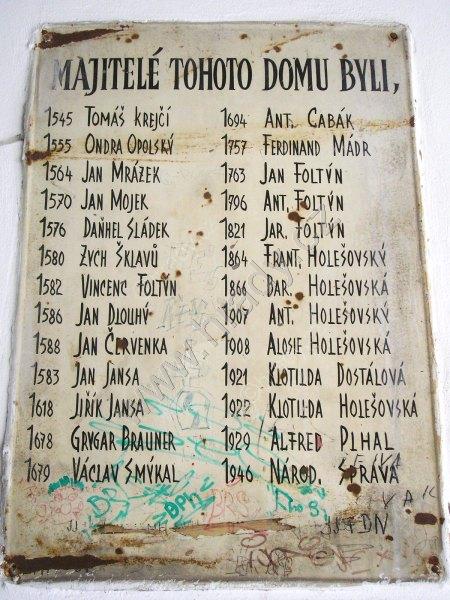 MAJITELÉ TOHOTO DOMU BYLI,
1545 TOMÁŠ KREJČÍ
1555 ONDRA OPOLSKÝ
1564 JAN MRÁZEK
1570 JAN MOJEK
1576 DAŇHEL SLÁDEK
1580 ZYCH ŠKLAVŮ
1582 VINCENC FOLTÝN
1586 JAN DLOUHÝ
1588 JAN ČERVENKA
1583 JAN JANSA
1618 JIŘÍK JANSA
1678 GRYGAR BRAUNER
1679 VÁCLAV SMÝKAL
1694 ANT. CABÁK
1757 FERDINAND MÁDR
1763 JAN FOLTÝN
1796 ANT. FOLTÝN
1821 JAR. FOLTÝN
1864 FRANT. HOLEŠOVSKÝ
1866 BAR. HOLEŠOVSKÁ
1907 ANT. HOLEŠOVSKÝ
1908 ALOSIE HOLEŠOVSKÁ
1921 KLOTILDA DOSTÁLOVÁ
1922 KLOTILDA HOLEŠOVSKÁ
1929 ALFRED PLHAL
1946 NÁROD. SPRÁVA
www.hrady.cz